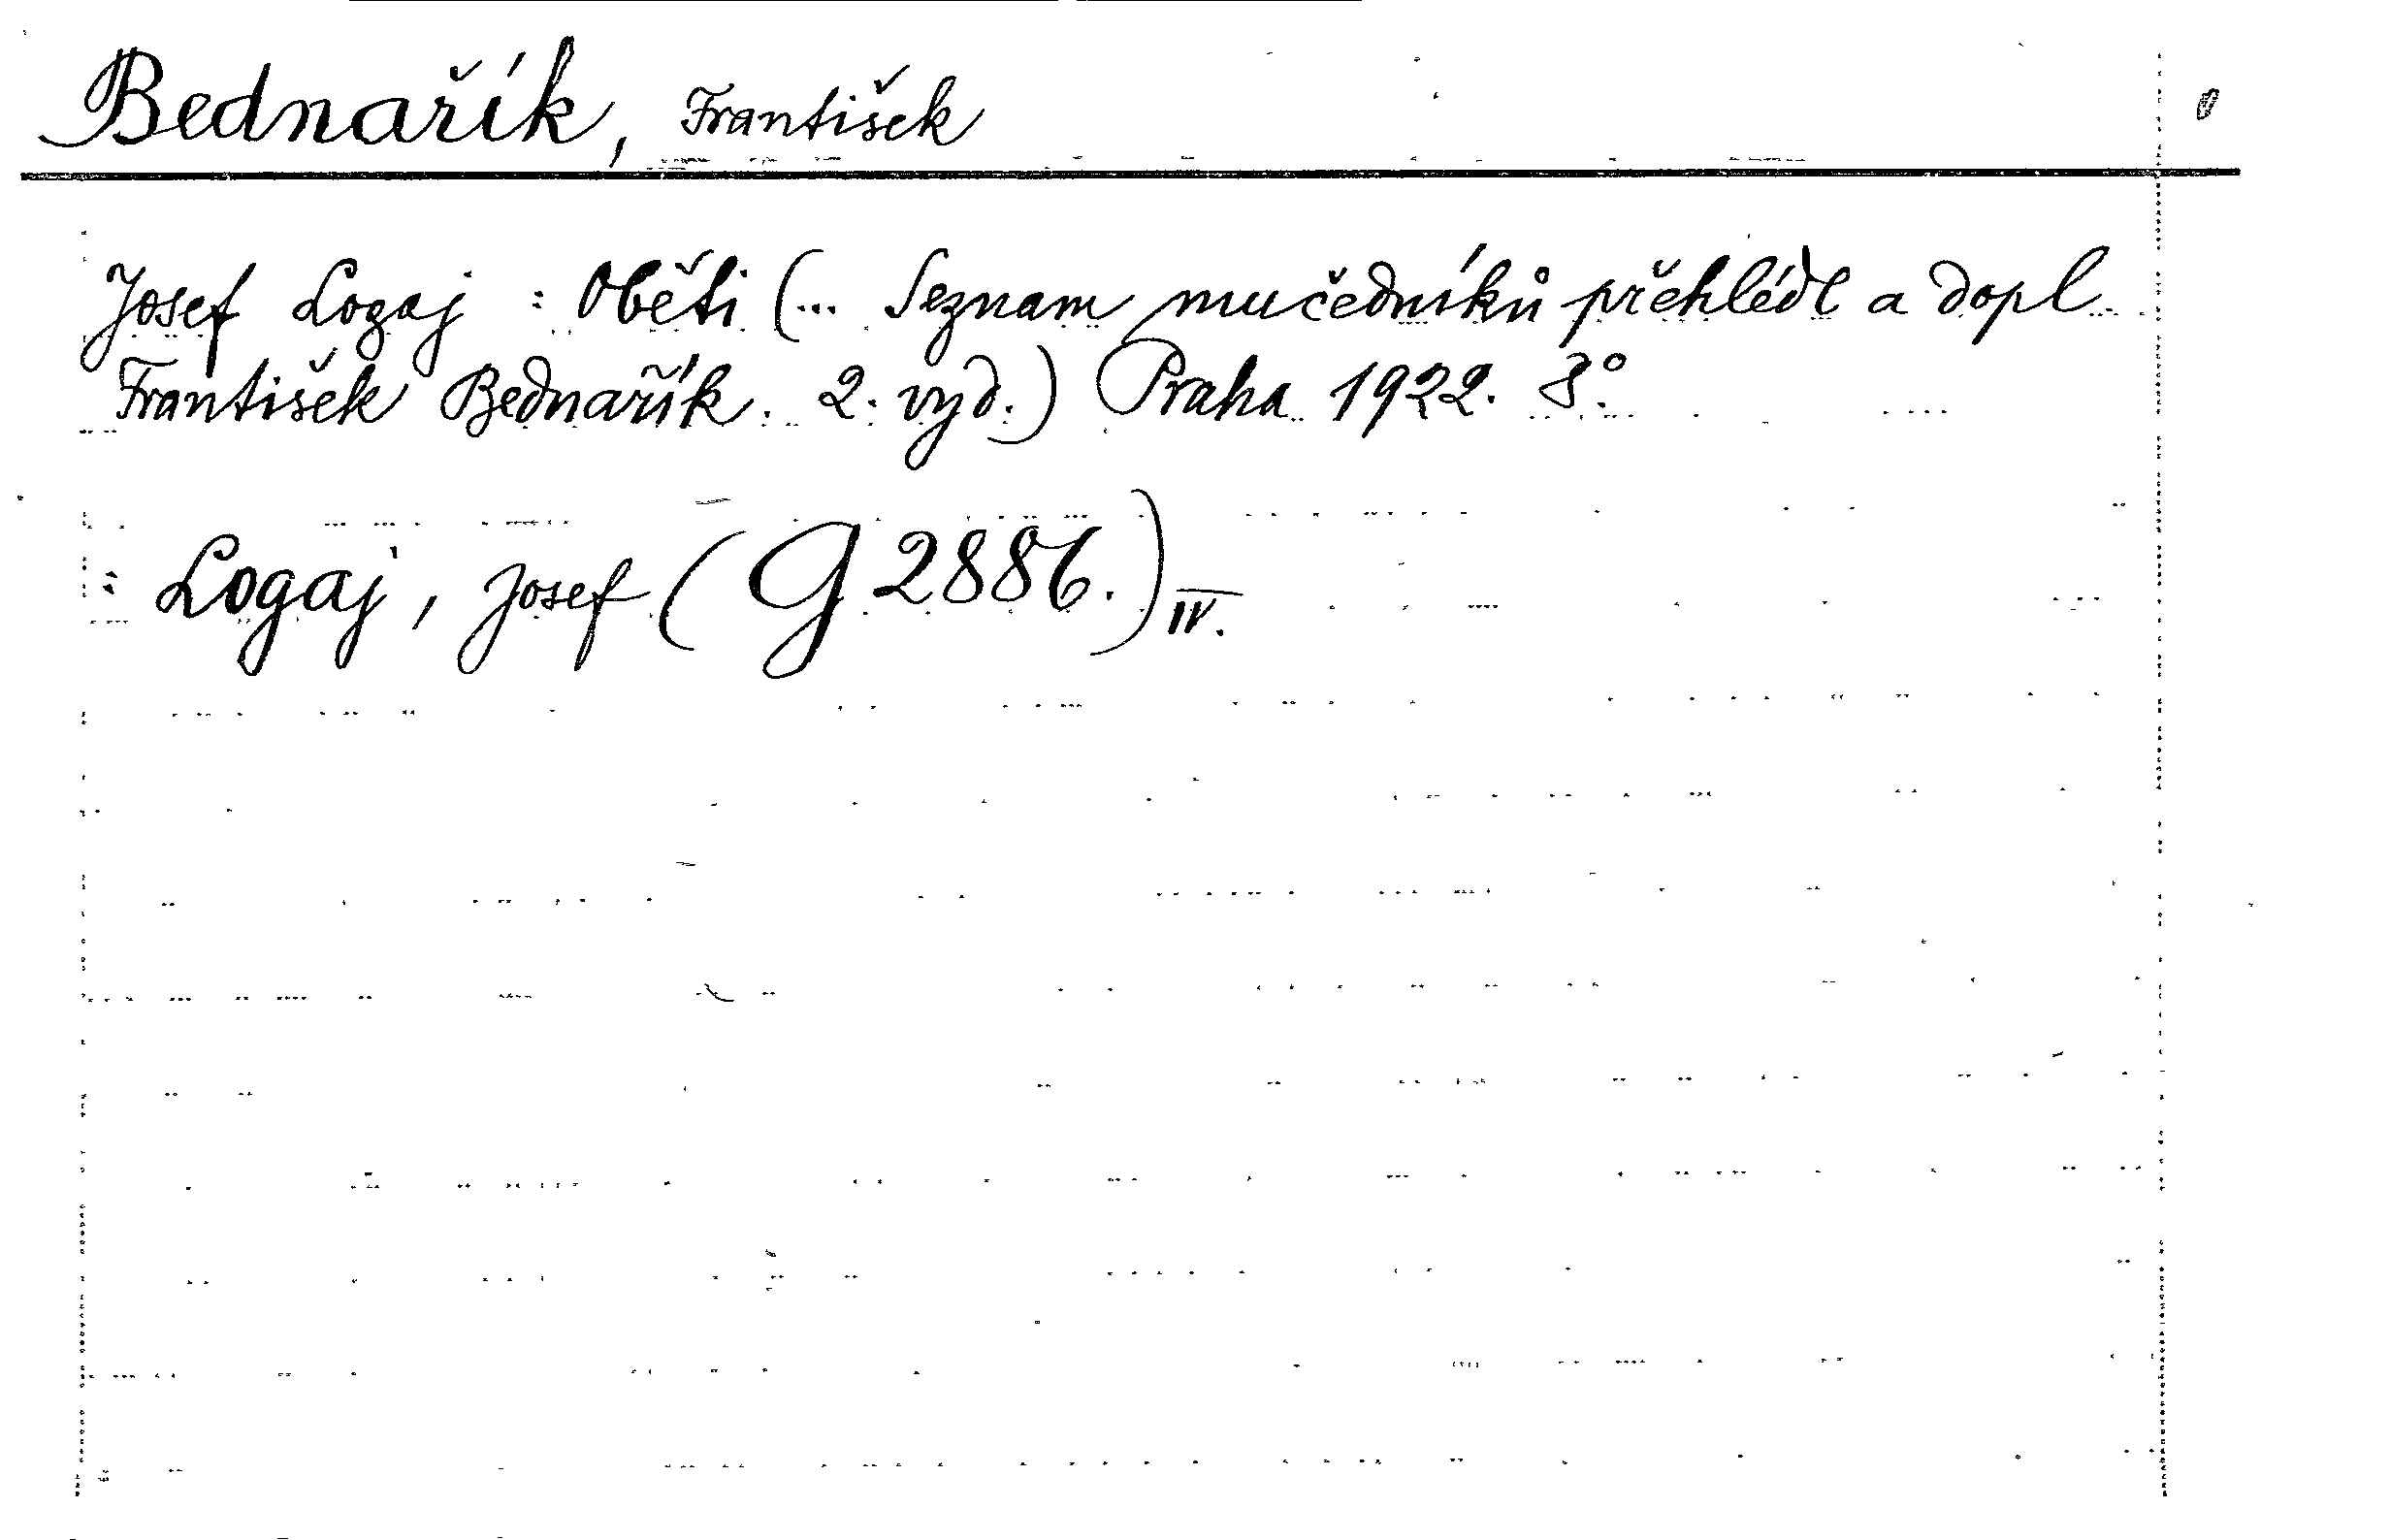 Bednařík, František
Josef Logaj : Oběti (... Seznam mučedníků přehlédl a dopl.
František Bednařík. 2. vyd.) Praha 1922. 8°.
: Logaj, Josef (G 2886.) IV.